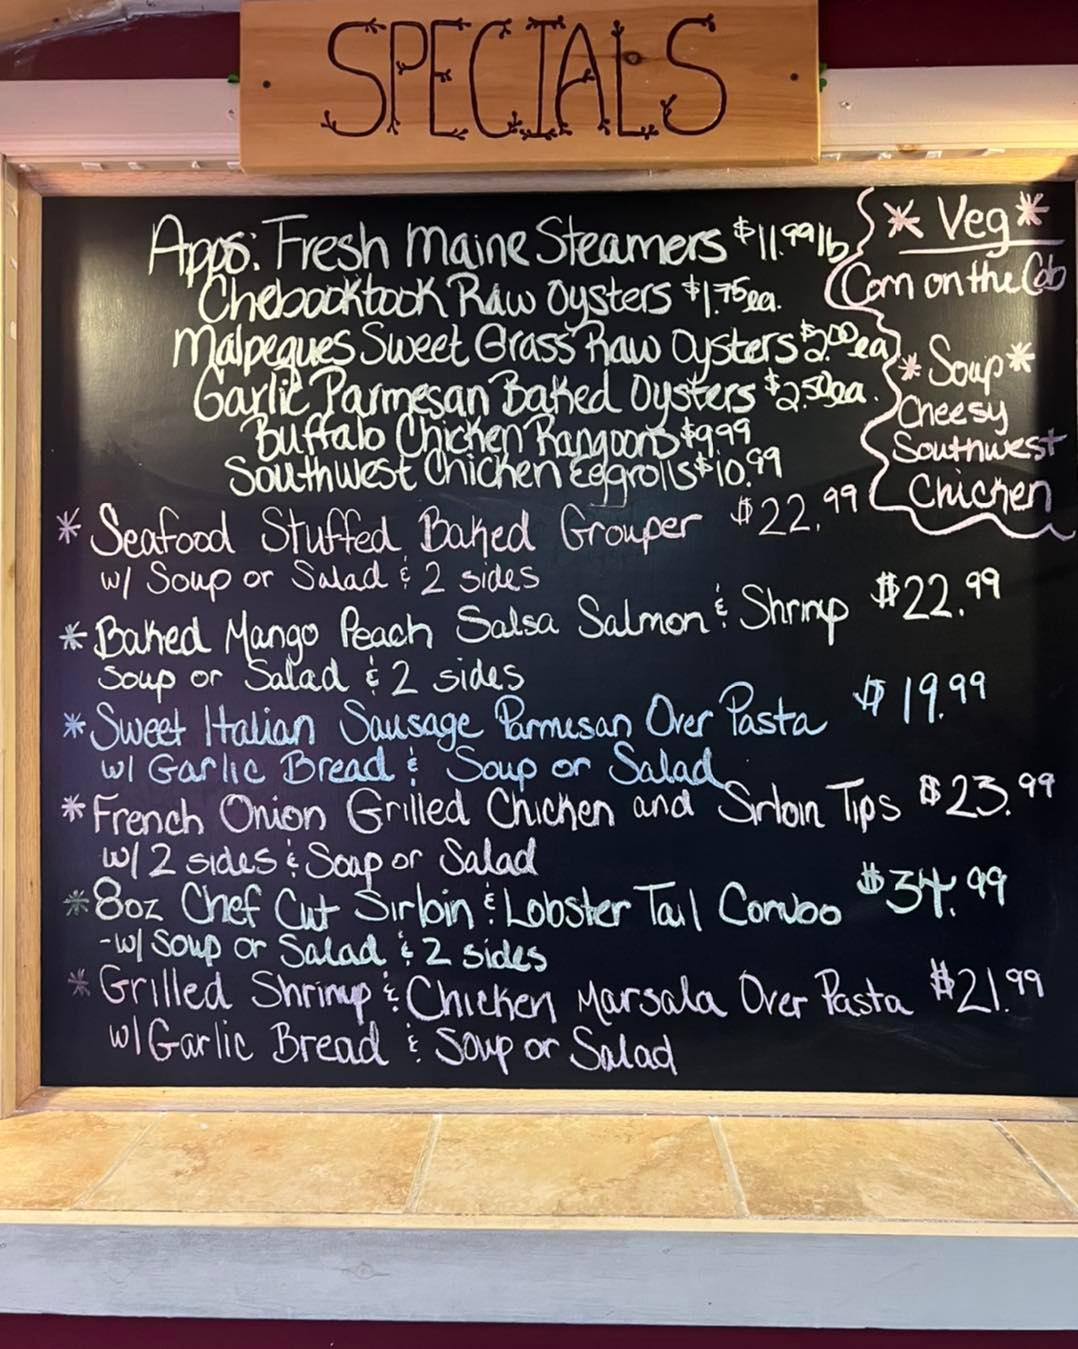 SPECIALS
Apps: Fresh Maine Steamers $11.99 lb
Chebooktook Raw Oysters $1.75 ea.
Malpeques Sweet Grass Raw Oysters $2.00 ea
Garlic Parmesan Baked Oysters $2.50 ea.
Buffalo Chicken Rangoons $9.99
Southwest Chicken Eggrolls $10.99
* Veg *
Corn on the Cob
* Soup *
Cheesy
Southwest
Chicken
* Seafood Stuffed Baked Grouper $22.99
w/ Soup or Salad & 2 sides
* Baked Mango Peach Salsa Salmon & Shrimp $22.99
Soup or Salad & 2 sides
* Sweet Italian Sausage Parmesan Over Pasta $19.99
w/ Garlic Bread & Soup or Salad
* French Onion Grilled Chicken and Sirloin Tips $23.99
w/ 2 sides & Soup or Salad
* 8oz Chef Cut Sirloin & Lobster Tail Combo $34.99
-w/ Soup or Salad & 2 sides
* Grilled Shrimp & Chicken Marsala Over Pasta $21.99
w/ Garlic Bread & Soup or Salad